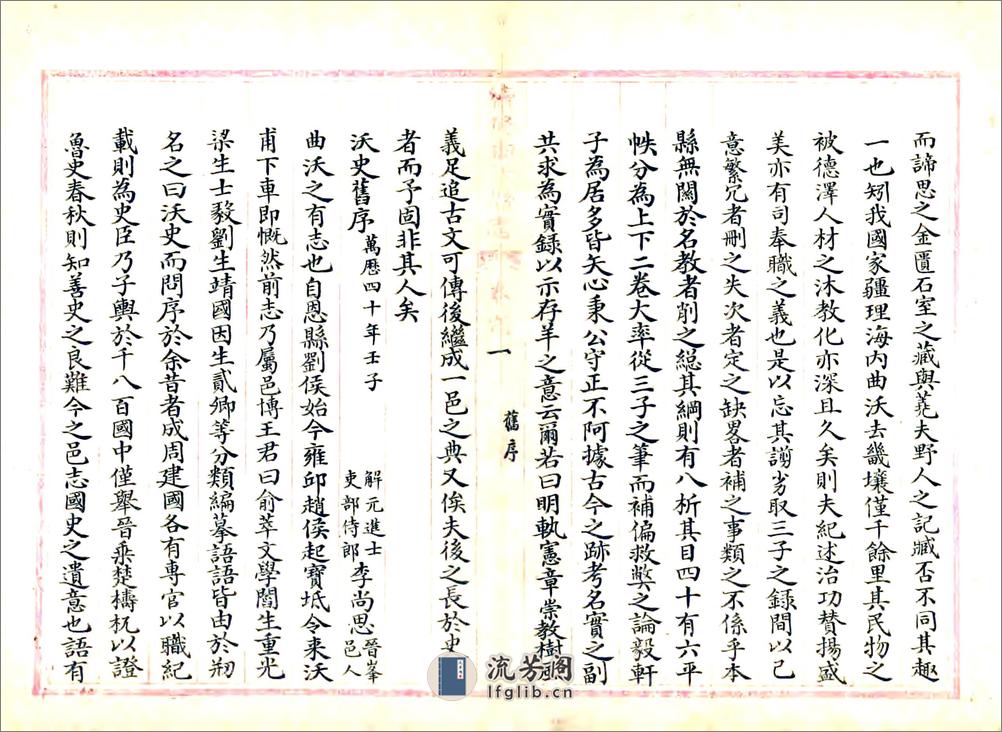 而諦思之金匱石室之藏與蕘夫野人之記臧否不同其趣
一也矧我國家疆理海內曲沃去畿壤僅千餘里其民物之
被德澤人材之沐教化亦深且久矣則夫紀述治功賛揚盛
美亦有司奉職之義也是以忘其謭劣取三子之錄間以己
意繁冗者刪之失次者定之缺畧者補之事類之不係乎本
縣無關於名教者削之總其綱則有八析其目四十有六平
帙分為上下二卷大率從三子之筆而補偏救獘之論毅軒
子為居多皆矢心秉公守正不阿據古今之跡考名實之副
共求為實錄以示存羊之意云爾若曰明執憲章崇教樹
舊序
一
義足追古文可傳後繼成一邑之典又俟夫後之長於史
者而予固非其人矣
沃史舊序 萬曆四十年壬子 解元進士吏部侍郎 李尚思 晉峯邑人
曲沃之有志也自恩縣劉侯始今雍邱趙侯起寶坻令来沃
甫下車即慨然前志乃屬邑博王君曰俞萃文學閻生重光
梁生士毅劉生靖國因生貳卿等分類編摹語語皆由於刱
名之曰沃史而問序於余昔者成周建國各有專官以職紀
載則為史臣乃子輿於千八百國中僅舉晉乘楚檮杌以證
魯史春秋則知善史之良難今之邑志國史之遺意也語有
流芳阁
lfglib.cn